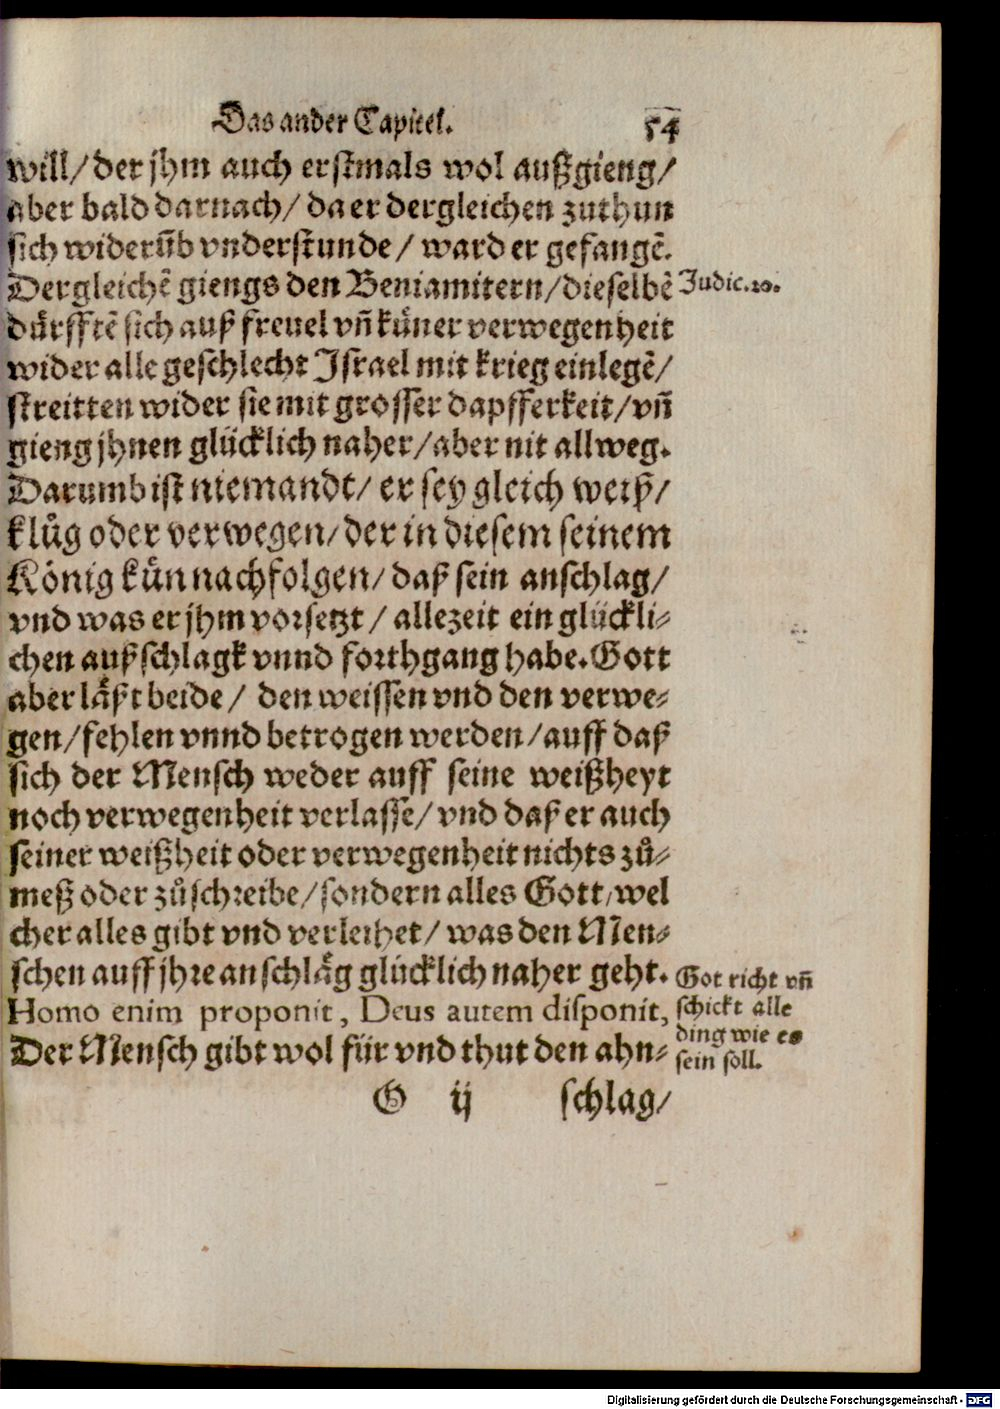 Das ander Capitel. 54
will/ der jhm auch erstmals wol außgieng/
aber bald darnach/ da er dergleichen zuthun
sich widerũb vnderstunde/ ward er gefangẽ.
Dergleichẽ giengs den Beniamitern/ dieselbẽ
Judic. 20.
dürfftẽ sich auß freuel vñ küner verwegenheit
wider alle geschlecht Israel mit krieg einlegẽ/
streitten wider sie mit grosser dapfferkeit/ vñ
gieng jhnen glücklich naher/ aber nit allweg.
Darumb ist niemandt/ er sey gleich weiß/
klůg oder verwegen/ der in diesem seinem
König kün nachfolgen/ daß sein anschlag/
vnd was er jhm vorsetzt/ allezeit ein glückli-
chen außschlagk vnnd forthgang habe. Gott
aber läßt beide/ den weissen vnd den verwe-
gen/ fehlen vnnd betrogen werden/ auff daß
sich der Mensch weder auff seine weißheyt
noch verwegenheit verlasse/ vnd daß er auch
seiner weißheit oder verwegenheit nichts zů-
meß oder zůschreibe/ sondern alles Gott/ wel
cher alles gibt vnd verleihet/ was den Men-
schen auff jhre anschläg glücklich naher geht.
Homo enim proponit, Deus autem disponit,
Der Mensch gibt wol für vnd thut den ahn-
Got richt vñ
schickt alle
ding wie es
sein soll.
G ij schlag/
Digitalisierung gefördert durch die Deutsche Forschungsgemeinschaft - DFG